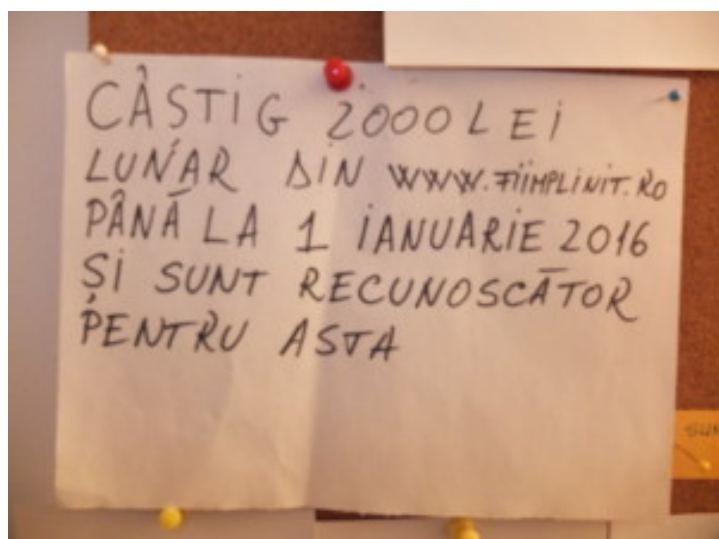 CÂȘTIG 2000 LEI
LUNAR DIN WWW.FIIMPLINIT.RO
PÂNĂ LA 1 IANUARIE 2016
ȘI SUNT RECUNOSCĂTOR
PENTRU ASTA
SUN